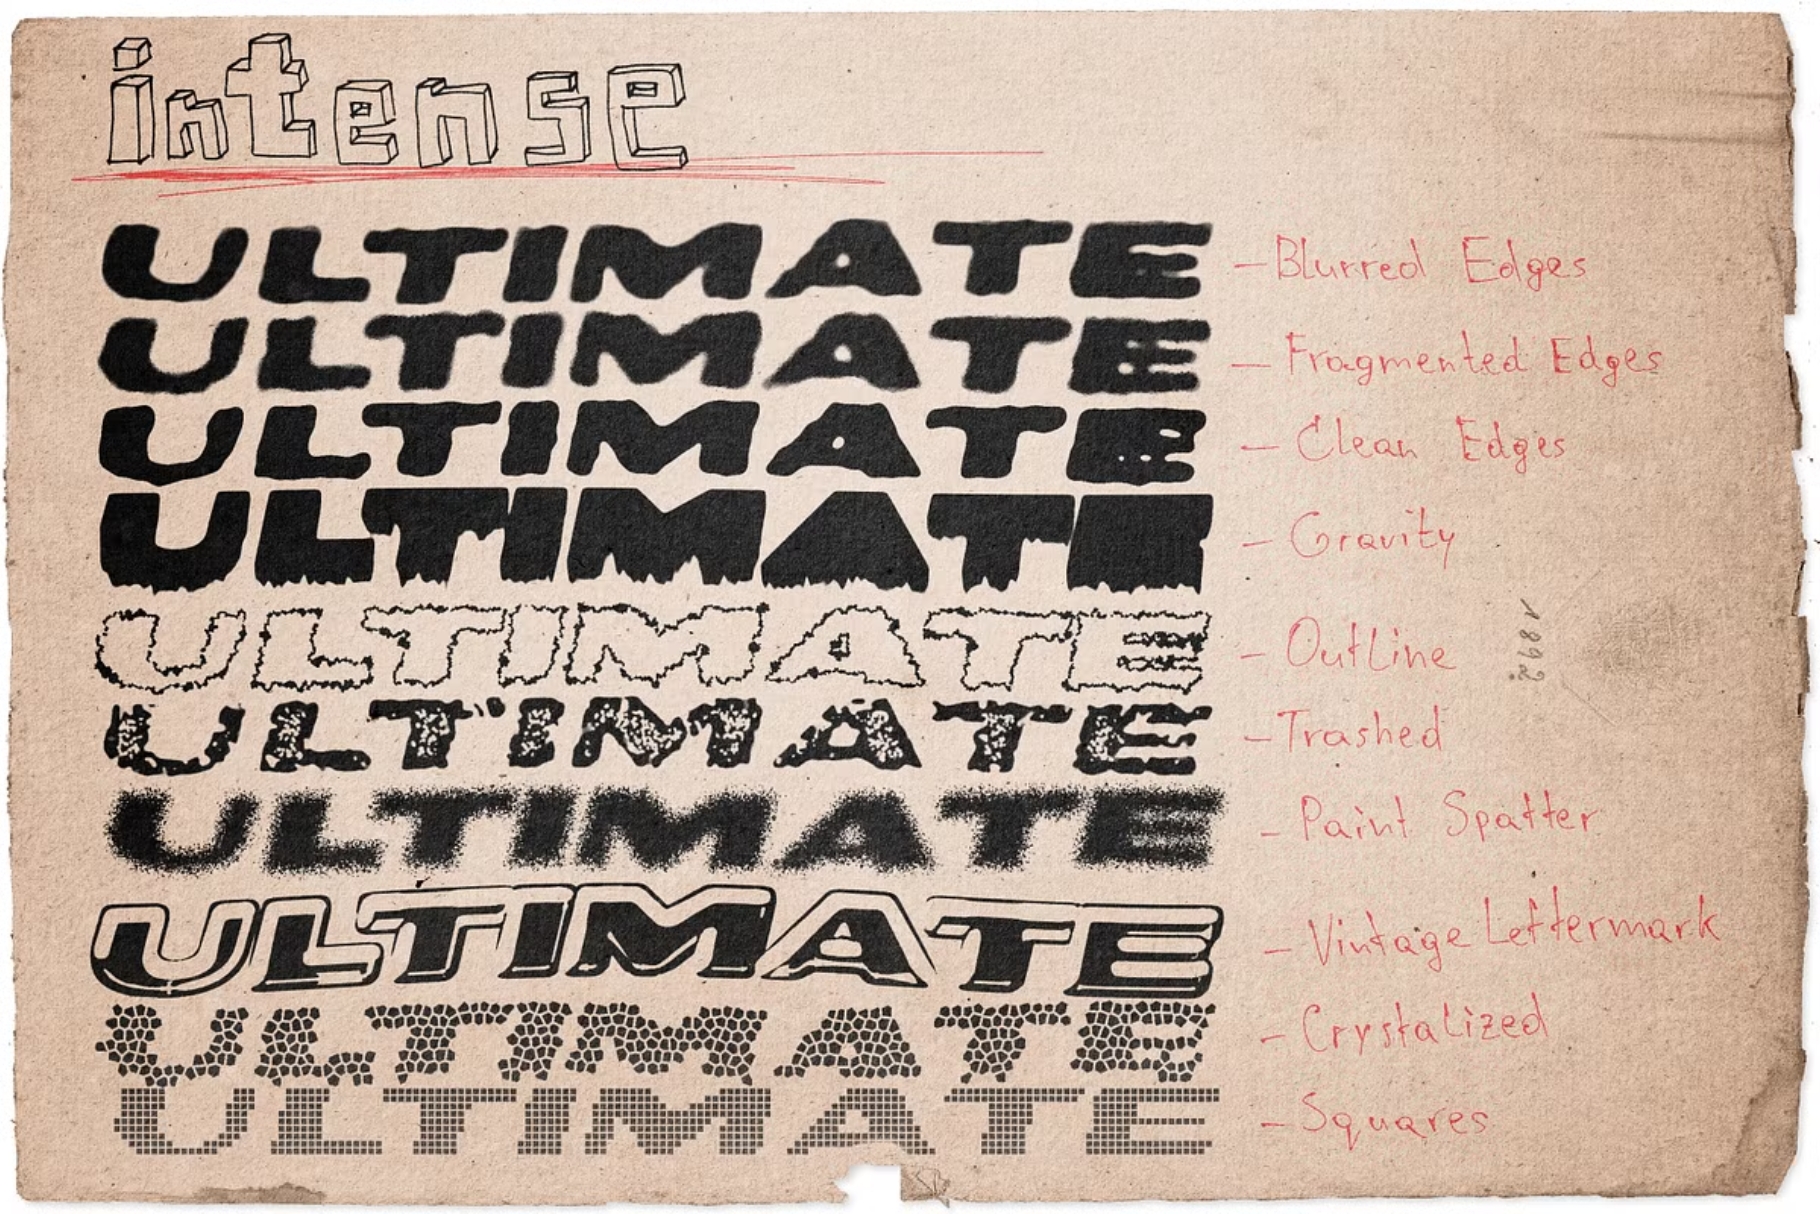 intense
ULTIMATE – Blurred Edges
ULTIMATE – Fragmented Edges
ULTIMATE – Clean Edges
ULTIMATE – Gravity
ULTIMATE – OutLine
1892
ULTIMATE – Trashed
ULTIMATE – Paint Spatter
ULTIMATE – Vintage Lettermark
ULTIMATE – Crystalized
ULTIMATE – Squares